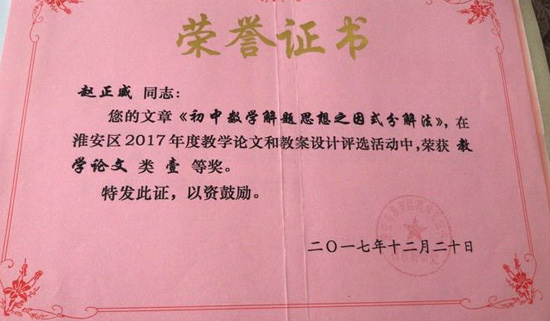 荣誉证书
赵正威 同志：
您的文章《初中数学解题思想之因式分解法》，在
淮安区2017年度教学论文和教案设计评选活动中，荣获 教
学论文 类 壹 等奖。
特发此证，以资鼓励。
二〇一七年十二月二十日